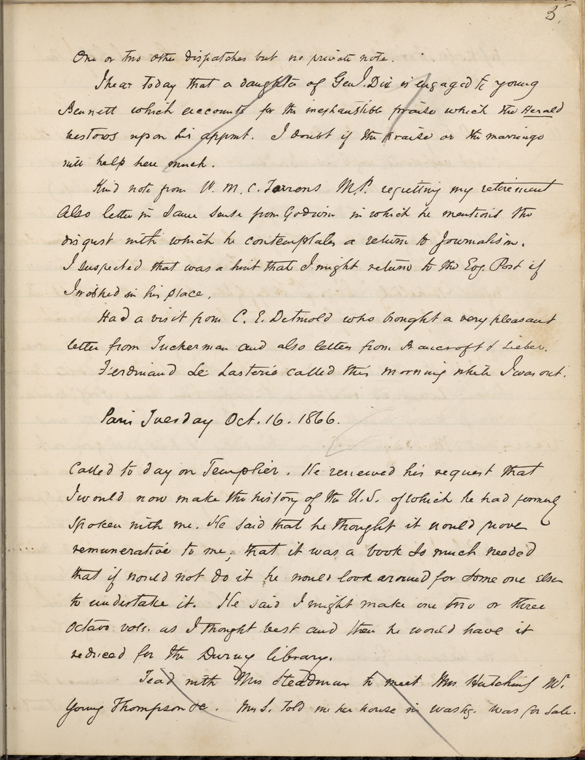 5
One or two other dispatches but no private note.
I hear today that a daughter of Genl. Dix is engaged to young
Bennett which accounts for the inexhaustible praise which the Herald
bestows upon his appmt. I doubt if the praise or the marriage
will help him much.
Kind note from W. M. C. Torrens M.P. regretting my retirement
Also letter in same sense from Godwin in which he mentions the
disgust with which he contemplates a return to Journalism.
I suspected that was a hint that I might return to the Evg. Post if
I wished in his place.
Had a visit from C. E. Detmold who brought a very pleasant
letter from Tuckerman and also letters from Bancroft & Lieber.
Ferdinand de Lasterie called this morning while I was out.
Paris Tuesday Oct. 16. 1866.
Called to day on Templier. He renewed his request that
I would now make the history of the U.S. of which he had formerly
spoken with me. He said that he thought it would prove
remunerative to me, that it was a book so much needed
that if I would not do it he would look around for some one else
to undertake it. He said I might make one two or three
octavo vols. as I thought best and then he would have it
reduced for the Duruy library.
Tead with Mrs Steadman to meet Mrs Hutching Mr.
Young Thompson &c. Mrs S. told me her house in Washg. was for sale.